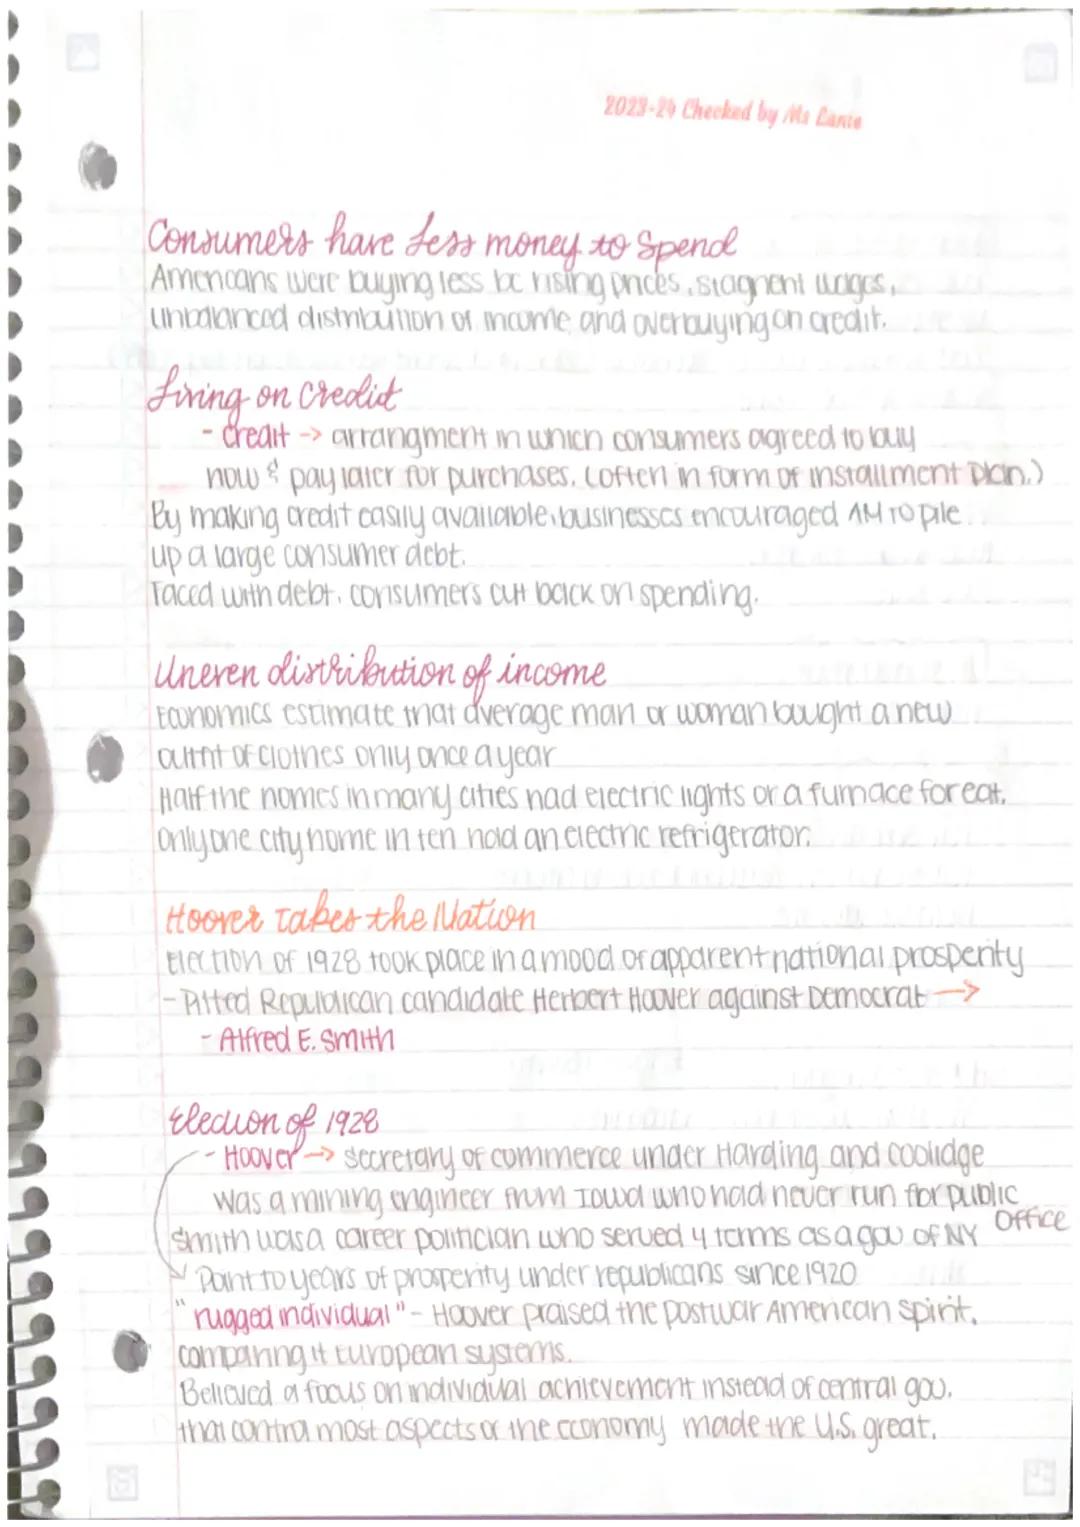 2023-24 Checked by Ms Lance
Consumers have less money to Spend
Americans were buying less bc rising prices, stagnent wages,
unbalanced distribution of income, and overbuying on credit.
Living on Credit
- credit → arrangment in which consumers agreed to buy
now & pay later for purchases. (often in form of installment plan.)
By making credit easily available, businesses encouraged AM to pile
up a large consumer debt.
Faced with debt, consumers cut back on spending.
Uneven distribution of income
Economics estimate that average man or woman bought a new
outfit of clothes only once a year
Half the homes in many cities had electric lights or a furnace for eat.
Only one city home in ten hold an electric refrigerator.
Hoover Takes the Nation
Election of 1928 took place in a mood of apparent national prosperity
- Pitted Republican candidate Herbert Hoover against Democrat →
- Alfred E. Smith
Election of 1928
- Hoover → secretary of commerce under Harding and Coolidge
was a mining engineer from Iowa who had never run for public
Office
Smith was a career politician who served 4 terms as a gov of NY
Point to years of prosperity under republicans since 1920
"rugged individual" - Hoover praised the postwar American spirit,
comparing it European systems.
Believed a focus on individual achievement instead of central gov.
that control most aspects of the economy made the U.S. great.